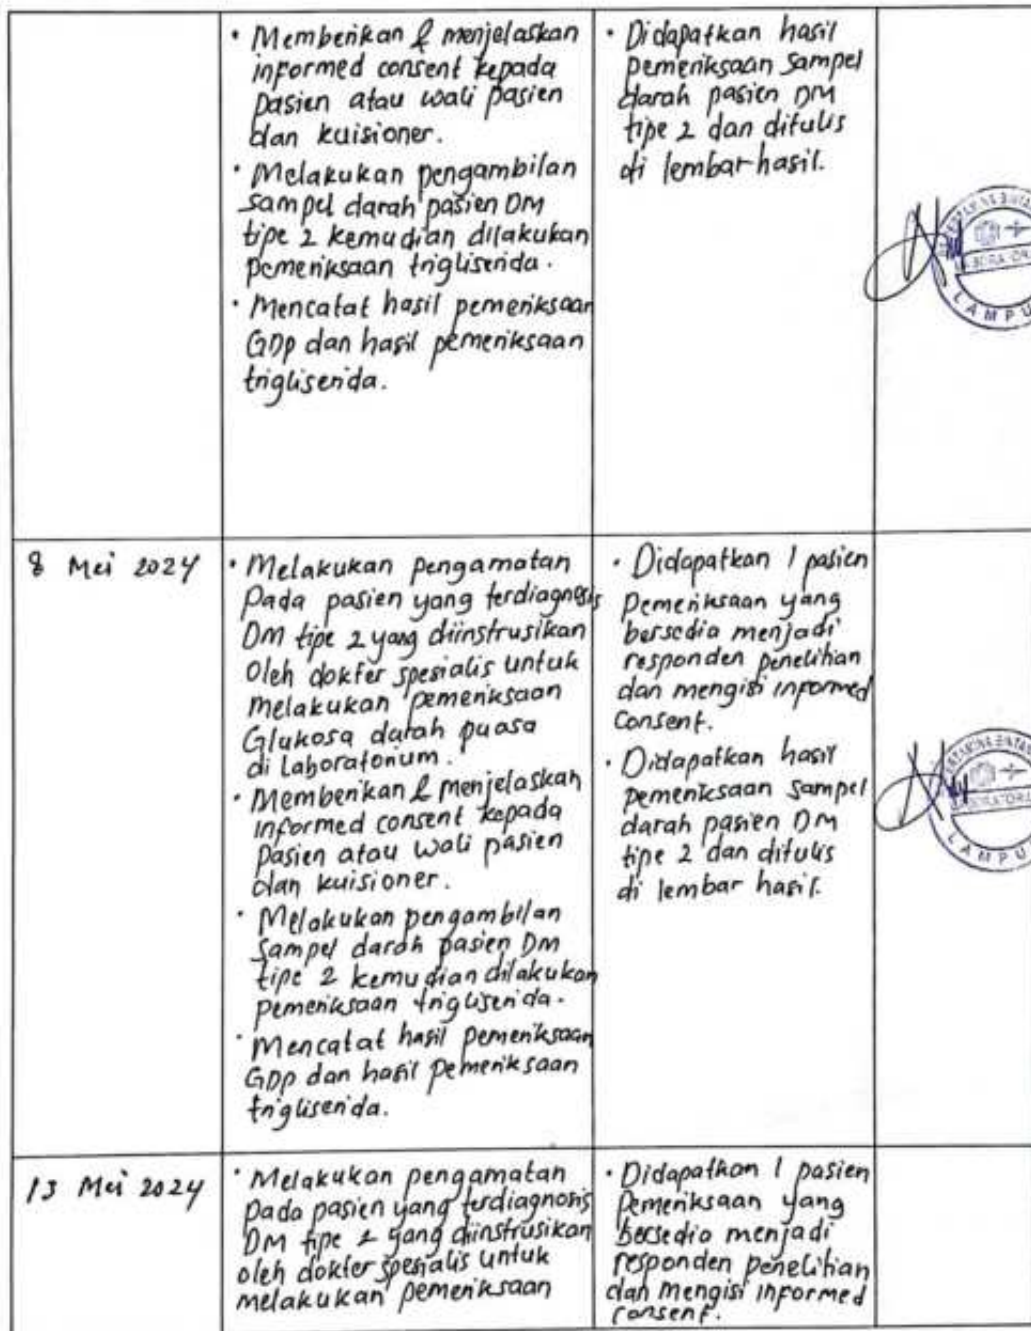 • Memberikan & menjelaskan
informed consent kepada
pasien atau wali pasien
dan kuisioner.
• Melakukan pengambilan
sampel darah pasien DM
tipe 2 kemudian dilakukan
pemeriksaan trigliserida.
• Mencatat hasil pemeriksaan
GDP dan hasil pemeriksaan
trigliserida.
• Didapatkan hasil
pemeriksaan sampel
darah pasien DM
tipe 2 dan ditulis
di lembar hasil.
LAMPU
8 Mei 2024
• Melakukan pengamatan
Pada pasien yang terdiagnosis
DM tipe 2 yang diinstrusikan
Oleh dokter spesialis untuk
melakukan pemeriksaan
Glukosa darah puasa
di Laboratorium.
• Memberikan & menjelaskan
informed consent kepada
pasien atau wali pasien
dan kuisioner.
• Melakukan pengambilan
sampel darah pasien DM
tipe 2 kemudian dilakukan
pemeriksaan trigliserida.
• Mencatat hasil pemeriksaan
GDP dan hasil pemeriksaan
trigliserida.
• Didapatkan 1 pasien
pemeriksaan yang
bersedia menjadi
responden penelitian
dan mengisi informed
consent.
• Didapatkan hasil
pemeriksaan sampel
darah pasien DM
tipe 2 dan ditulis
di lembar hasil.
LAMPU
13 Mei 2024
• Melakukan pengamatan
pada pasien yang terdiagnosis
DM tipe 2 yang diinstrusikan
oleh dokter spesialis untuk
melakukan pemeriksaan
• Didapatkan 1 pasien
pemeriksaan yang
bersedia menjadi
responden penelitian
dan mengisi informed
consent.